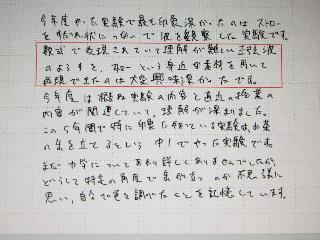 今年度やった実験で最も印象深かったのはストロー
をすだれ状につないで波を観察した実験です。
数式で表現されていて理解が難しい正弦波
のようすを、ストローという身近な素材を用いて
再現できたのは大変興味深かったです。
今年度は概ね実験の内容と直近の授業の
内容が関連していて、理解が深まりました。
この5年間で特に印象に残っている実験は、お茶
の泡を立てるという中1でやった実験です。
まだ力学についてあまり詳しくありませんでしたが、
どうして特定の角度で泡が立つのか不思議に
思い、自分で色々調べたことを記憶しています。